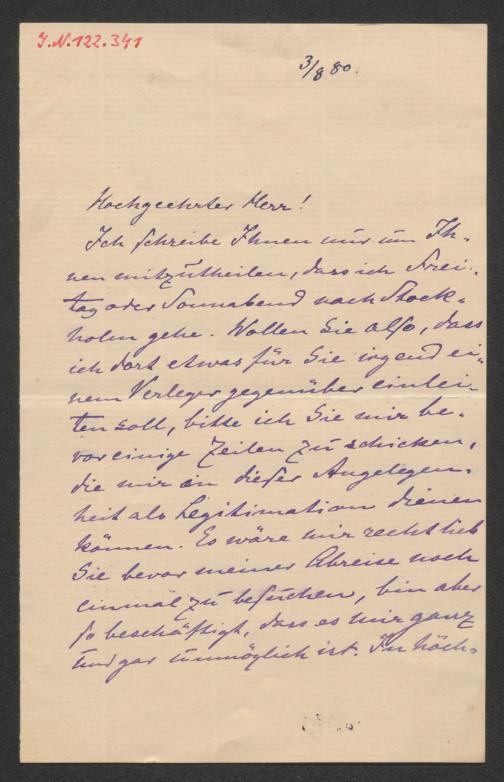 I.N.122.341
3/8 80.
Hochgeehrter Herr!
Ich schreibe Ihnen nur um Ih-
nen mitzutheilen, dass ich Frei-
tag oder Sonnabend nach Stock-
holm gehe. Wollen Sie also, dass
ich dort etwas für Sie irgend ei-
nem Verleger gegenüber einlei-
ten soll, bitte ich Sie mir be-
vor einige Zeilen zu schicken,
die mir in dieser Angelegen-
heit als Legitimation dienen
können. Es wäre mir recht lieb
Sie bevor meiner Abreise noch
einmal zu besuchen, bin aber
so beschäftigt, dass es mir ganz
und gar unmöglich ist. In höch-